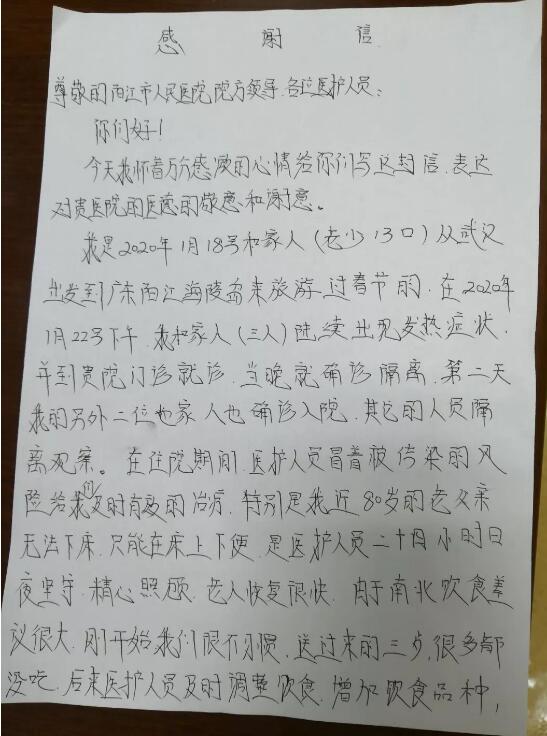 感 谢 信
尊敬的阳江市人民医院院方领导、各位医护人员:
你们好!
今天我怀着万分感激的心情给你们写这封信,表达
对贵医院的医德的敬意和谢意。
我是2020年1月18号和家人(老少13口)从武汉
出发到广东阳江海陵岛来旅游、过春节的,在2020年
1月22号下午,我和家人(三人)陆续出现发热症状,
并到贵院门诊就诊,当晚就确诊隔离,第二天
我的另外二位也家人也确诊入院,其它的人员隔
离观察。在住院期间,医护人员冒着被传染的风
险给我们及时有效的治疗,特别是我近80岁的老父亲
无法下床,只能在床上下便,是医护人员二十四小时日
夜坚守,精心照顾,老人恢复很快,由于南北饮食差
议很大,刚开始我们很不习惯,送过来的三歺,很多都
没吃,后来医护人员及时调整饮食,增加饮食品种,